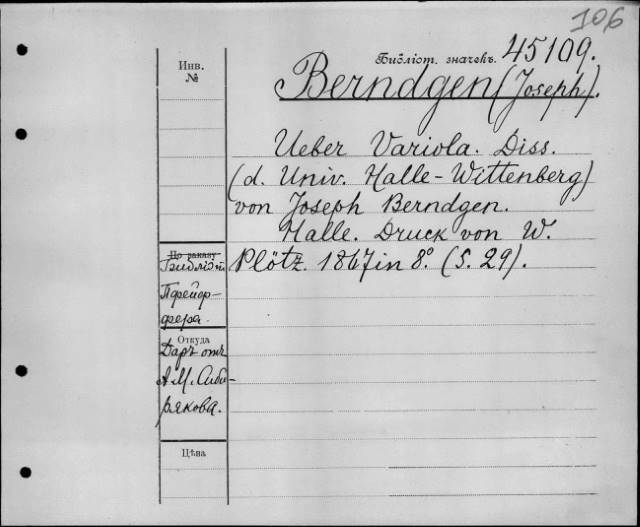 106
Библіот. значекъ. 45109.
Инв.
№
Berndgen (Joseph).
Ueber Variola. Diss.
(d. Univ. Halle-Wittenberg)
von Joseph Berndgen.
Halle. Druck von W.
Plötz. 1867 in 8° (S. 29).
По заказу
Библіот.
Пфейф-
фера.
Откуда
Даръ отъ
А.М. Сиби-
рякова.
Цѣна